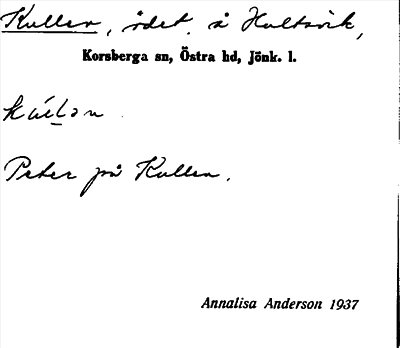 Kullen, ödet. å Hultsvik,
Korsberga sn, Östra hd, Jönk. l.
kúlan
Peter på Kullen.
Annalisa Anderson 1937